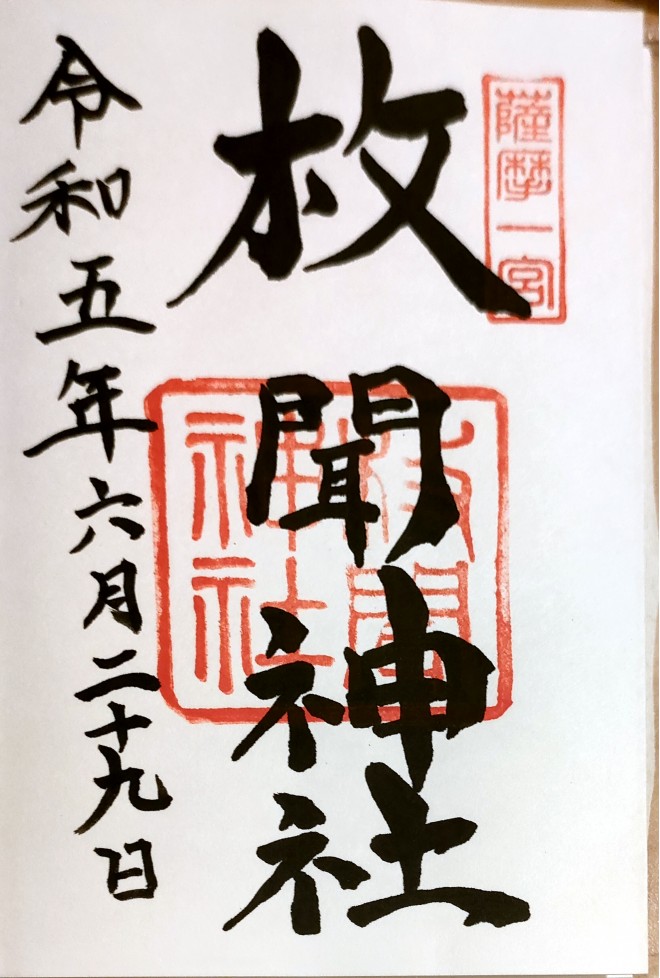 薩摩一宮
枚聞神社
枚聞
神社
令和五年六月二十九日